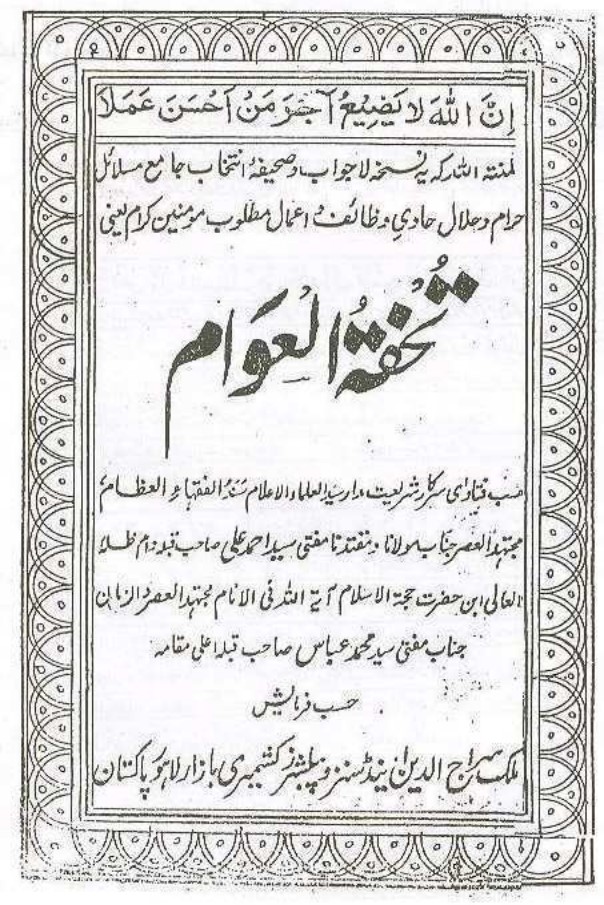 اِنَّ اللّٰهَ لَا یَضِیْعُ اَجْرَ مَنْ اَحْسَنَ عَمَلًا
لمنتہ اللہ کہ یہ نسخہ لاجواب و صحیفۂ انتخاب جامع مسائل
حرام و حلال حاوی وظائف و اعمال مطلوب مومنین کرام یعنی
تُحْفَۃُ الْعَوَام
حسب فتاوای سرکار شریعت مدار سید العلماء الاعلام سند الفقہاء العظام
مجتہد العصر جناب مولانا و مقتدانا مفتی سید احمد علی صاحب قبلہ دام ظلہ
العالی ابن حضرت حجۃ الاسلام آیۃ اللہ فی الانام مجتہد العصر والزمان
جناب مفتی سید محمد عباس صاحب قبلہ اعلی مقامہ
حسب فرمایش
ملک سراج الدین اینڈ سنز و پبلشرز کشمیری بازار لاہور پاکستان